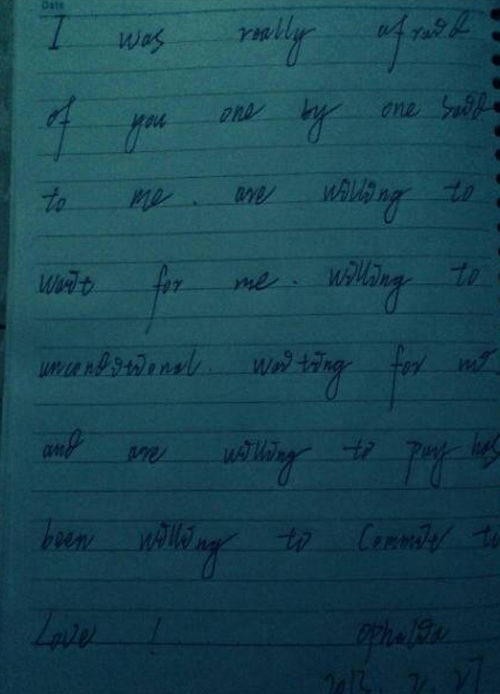 Date
I was really afraid
of you one by one said
to me. are willing to
wait for me. willing to
unconditional. waiting for me
and are willing to pay has
been willing to Commit to
Love !